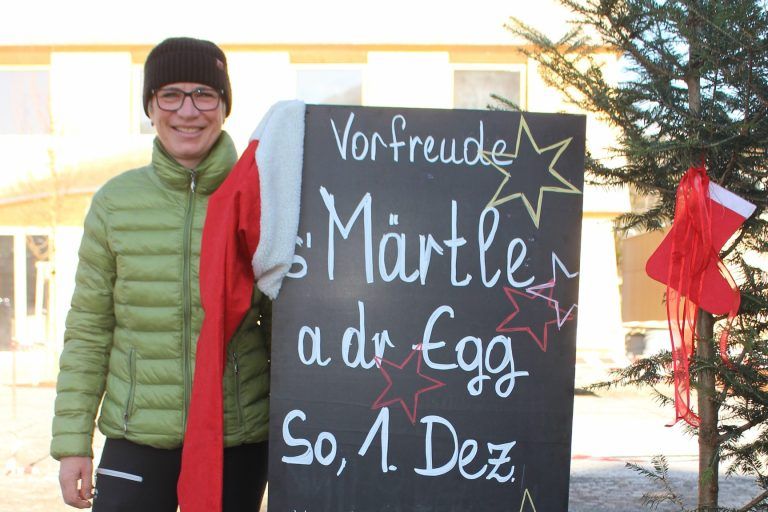 Vorfreude
s' Märtle
a dr Egg
So, 1. Dez.